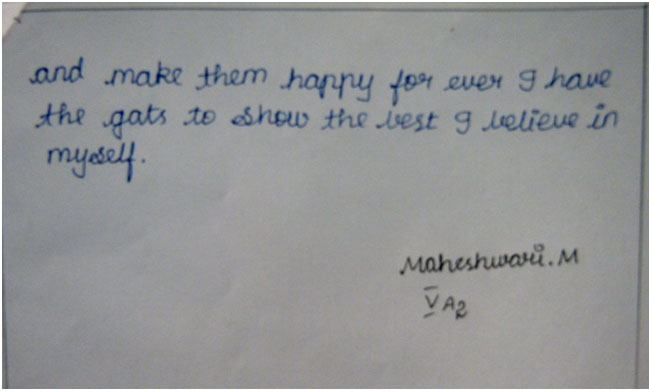 and make them happy for ever I have
the gats to show the best I believe in
myself.
Maheshwari.M
V A2